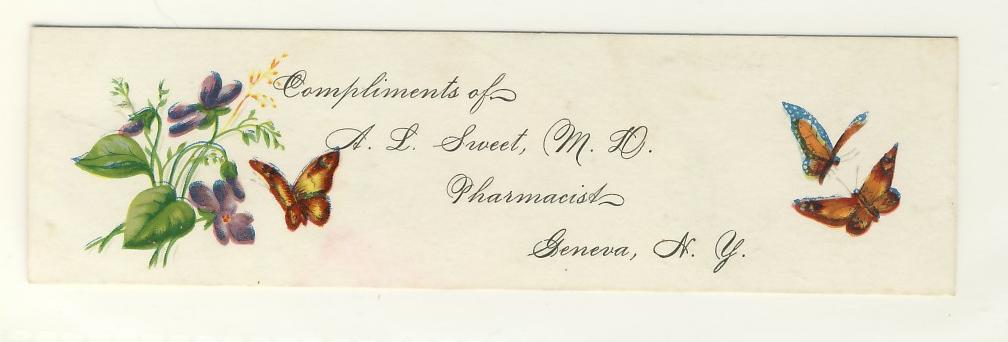 Compliments of
A. L. Sweet, M. D.
Pharmacist
Geneva, N. Y.